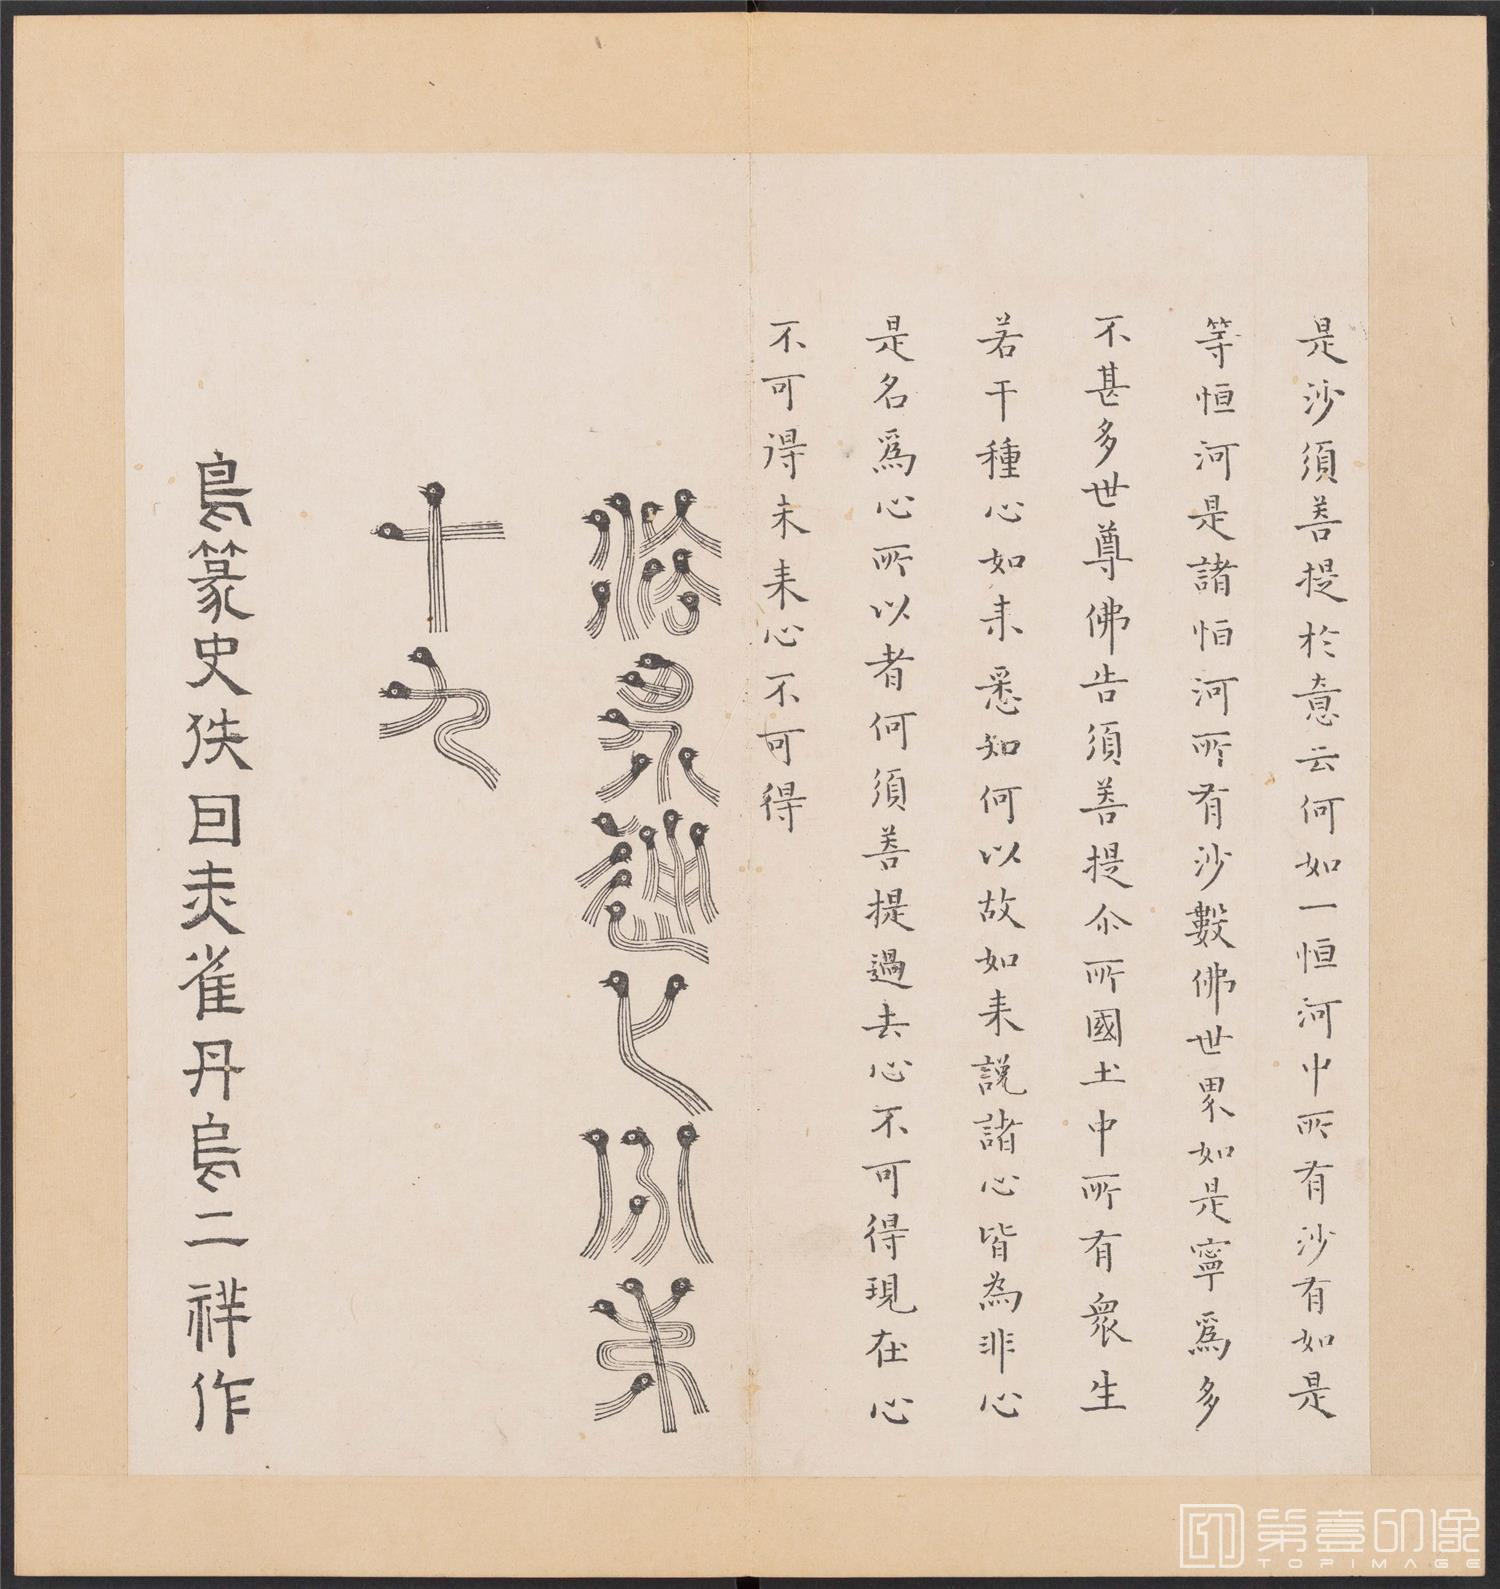 是沙須菩提於意云何如一恒河中所有沙有如是
等恒河是諸恒河所有沙數佛世界如是寧爲多
不甚多世尊佛告須菩提尒所國土中所有衆生
若干種心如来悉知何以故如来說諸心皆為非心
是名爲心所以者何須菩提過去心不可得現在心
不可得未来心不可得
法界通化分弟
十九
鳥篆史佚囙赤雀丹烏二祥作
第壹印像
TOPIMAGE